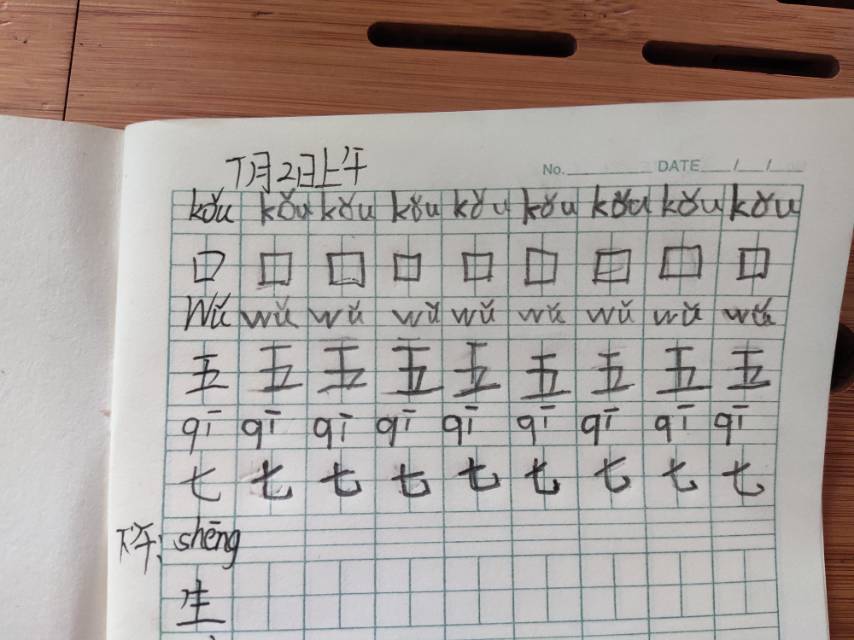 7月2日上午
No. DATE / /
kǒu kǒu kǒu kǒu kǒu kǒu kǒu kǒu kǒu
口 口 口 口 口 口 口 口 口
Wǔ wǔ wǔ wǔ wǔ wǔ wǔ wǔ wǔ
五 五 五 五 五 五 五 五 五
qī qī qī qī qī qī qī qī qī
七 七 七 七 七 七 七 七 七
下午: shēng
生